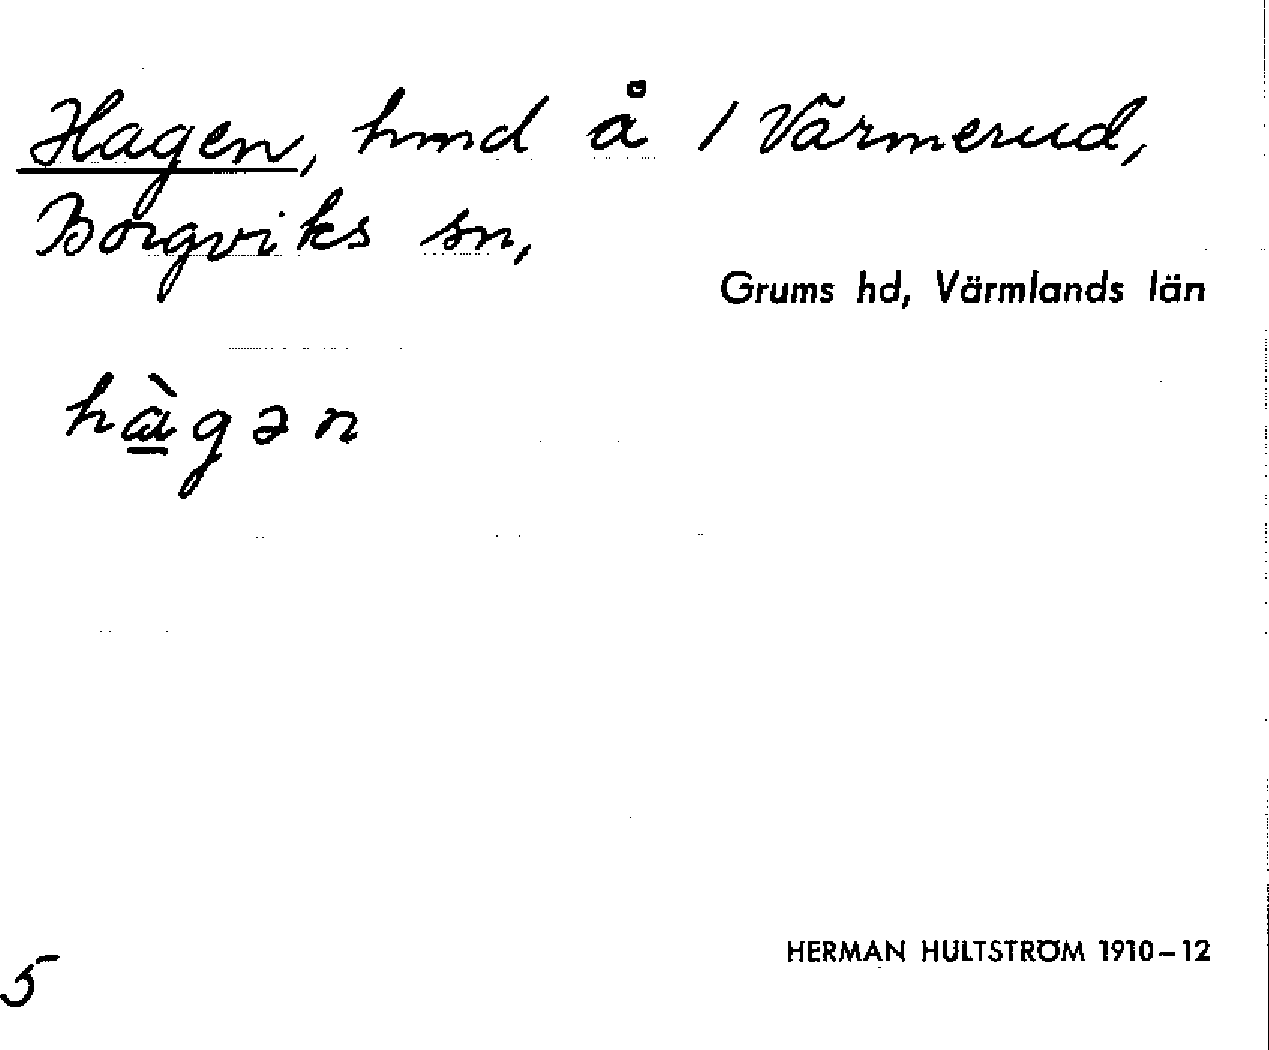 Hagen, hmd å 1 Värmerud,
Borgviks sn,
Grums hd, Värmlands län
hàgən
5
HERMAN HULTSTRÖM 1910–12